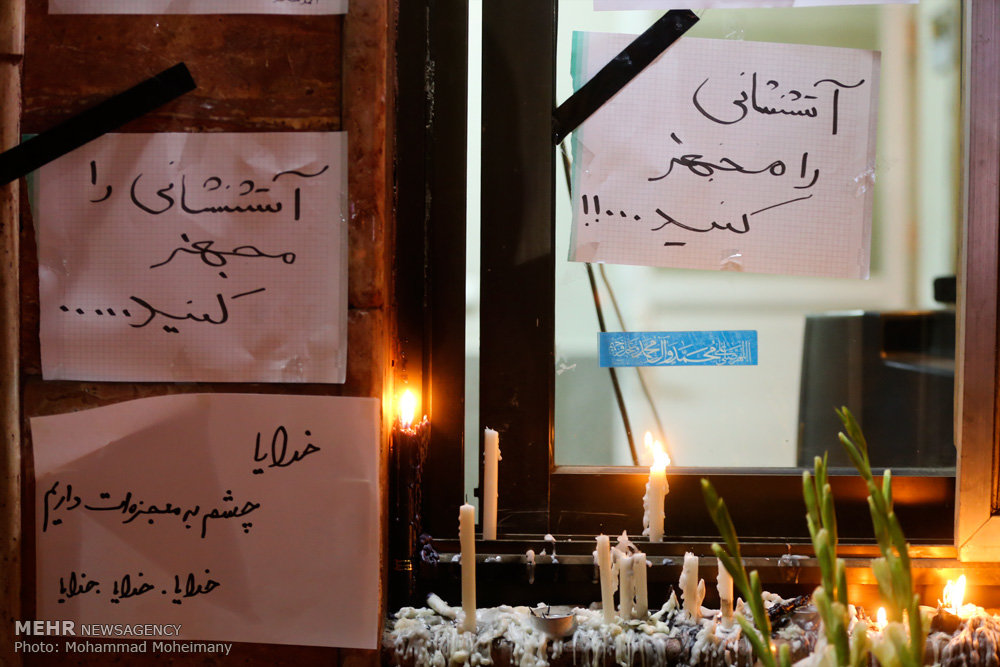 آتشنشانی
را مجهز
کنید...!!
آتشنشانی را
مجهز
کنید.....
اللهم صل علی محمد و آل محمد و عجل فرجهم
خدایا
چشم به معجزه‌ات داریم
خدایا. خدایا. خدایا
MEHR NEWSAGENCY
Photo: Mohammad Moheimany